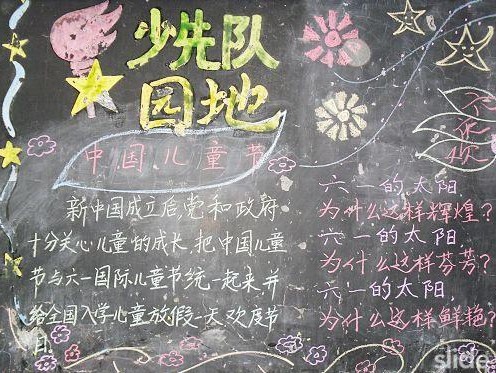 少先队
园地
中国儿童节
新中国成立后,党和政府
十分关心儿童的成长,把中国儿童
节与六一国际儿童节统一起来,并
给全国入学儿童放假一天,欢度节
日
六一的太阳,
为什么这样辉煌?
六一的太阳,
为什么这样芬芳?
六一的太阳,
为什么这样鲜艳?
slide